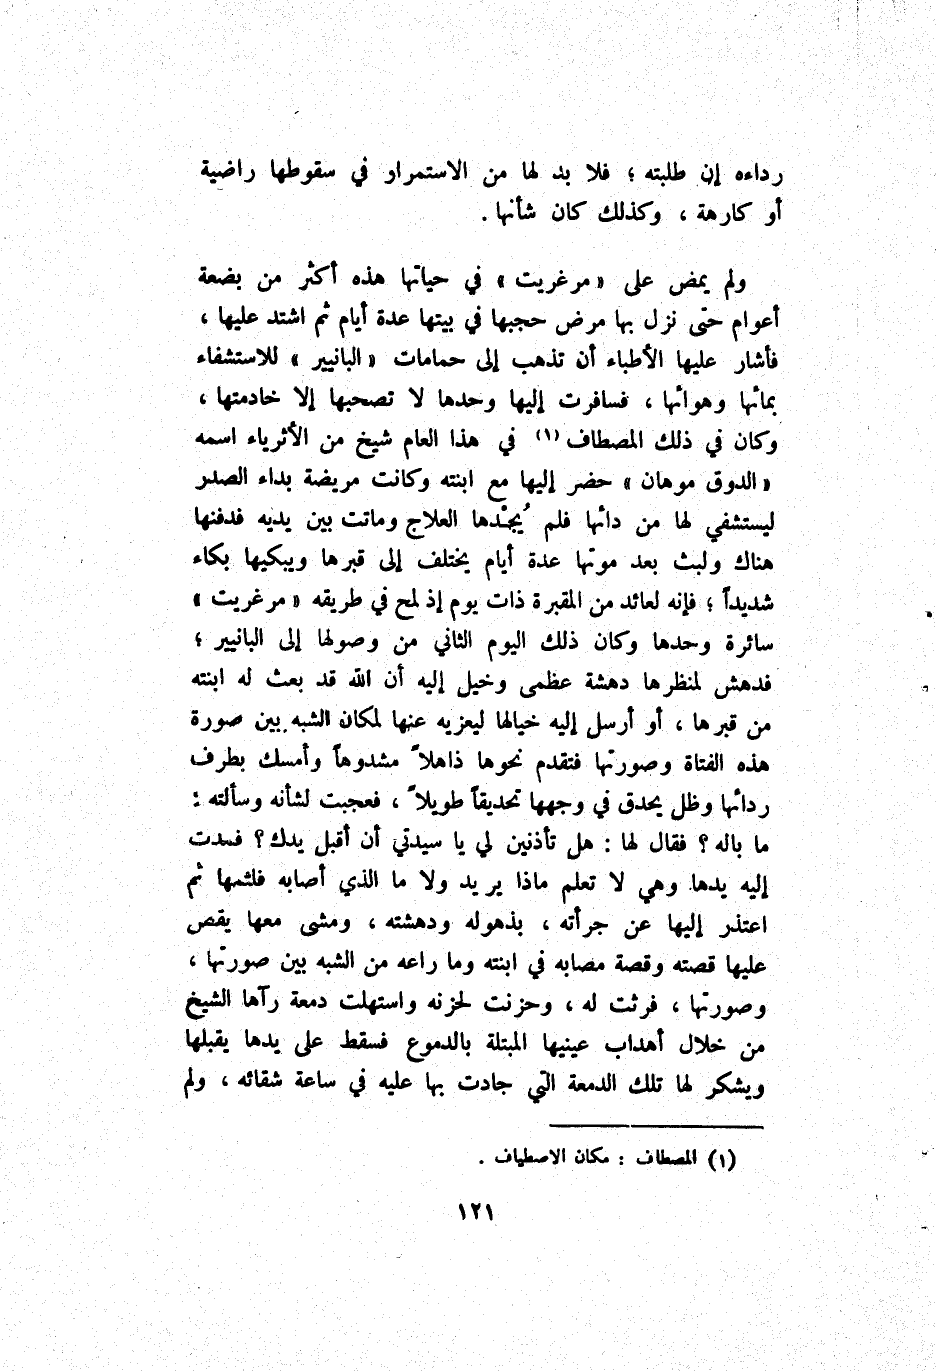 رداءه إن طلبته ؛ فلا بد لها من الاستمرار في سقوطها راضية
أو كارهة ، وكذلك كان شأنها .
ولم يمض على « مرغريت » في حياتها هذه أكثر من بضعة
أعوام حتى نزل بها مرض حجبها في بيتها عدة أيام ثم اشتد عليها ،
فأشار عليها الأطباء أن تذهب إلى حمامات « البانيير » للاستشفاء
بمائها وهوائها ، فسافرت إليها وحدها لا تصحبها إلا خادمتها ،
وكان في ذلك المصطاف (١) في هذا العام شيخ من الأثرياء اسمه
« الدوق موهان » حضر إليها مع ابنته وكانت مريضة بداء الصدر
ليستشفي لها من دائها فلم يُجدها العلاج وماتت بين يديه فدفنها
هناك ولبث بعد موتها عدة أيام يختلف إلى قبرها ويبكيها بكاء
شديداً ؛ فإنه لعائد من المقبرة ذات يوم إذ لمح في طريقه « مرغريت »
سائرة وحدها وكان ذلك اليوم الثاني من وصولها إلى البانيير ؛
فدهش لمنظرها دهشة عظمى وخيل إليه أن الله قد بعث له ابنته
من قبرها ، أو أرسل إليه خيالها ليعزيه عنها لمكان الشبه بين صورة
هذه الفتاة وصورتها فتقدم نحوها ذاهلاً مشدوهاً وأمسك بطرف
ردائها وظل يحدق في وجهها تحديقاً طويلاً ، فعجبت لشأنه وسألته :
ما باله ؟ فقال لها : هل تأذنين لي يا سيدتي أن أقبل يدك ؟ فمدت
إليه يدها وهي لا تعلم ماذا يريد ولا ما الذي أصابه فلثمها ثم
اعتذر إليها عن جرأته ، بذهوله ودهشته ، ومشى معها يقص
عليها قصته وقصة مصابه في ابنته وما راعه من الشبه بين صورتها ،
وصورتها ، فرثت له ، وحزنت لحزنه واستهلت دمعة رآها الشيخ
من خلال أهداب عينيها المبتلة بالدموع فسقط على يدها يقبلها
ويشكر لها تلك الدمعة التي جادت بها عليه في ساعة شقائه ، ولم
(١) المصطاف : مكان الاصطياف .
١٢١